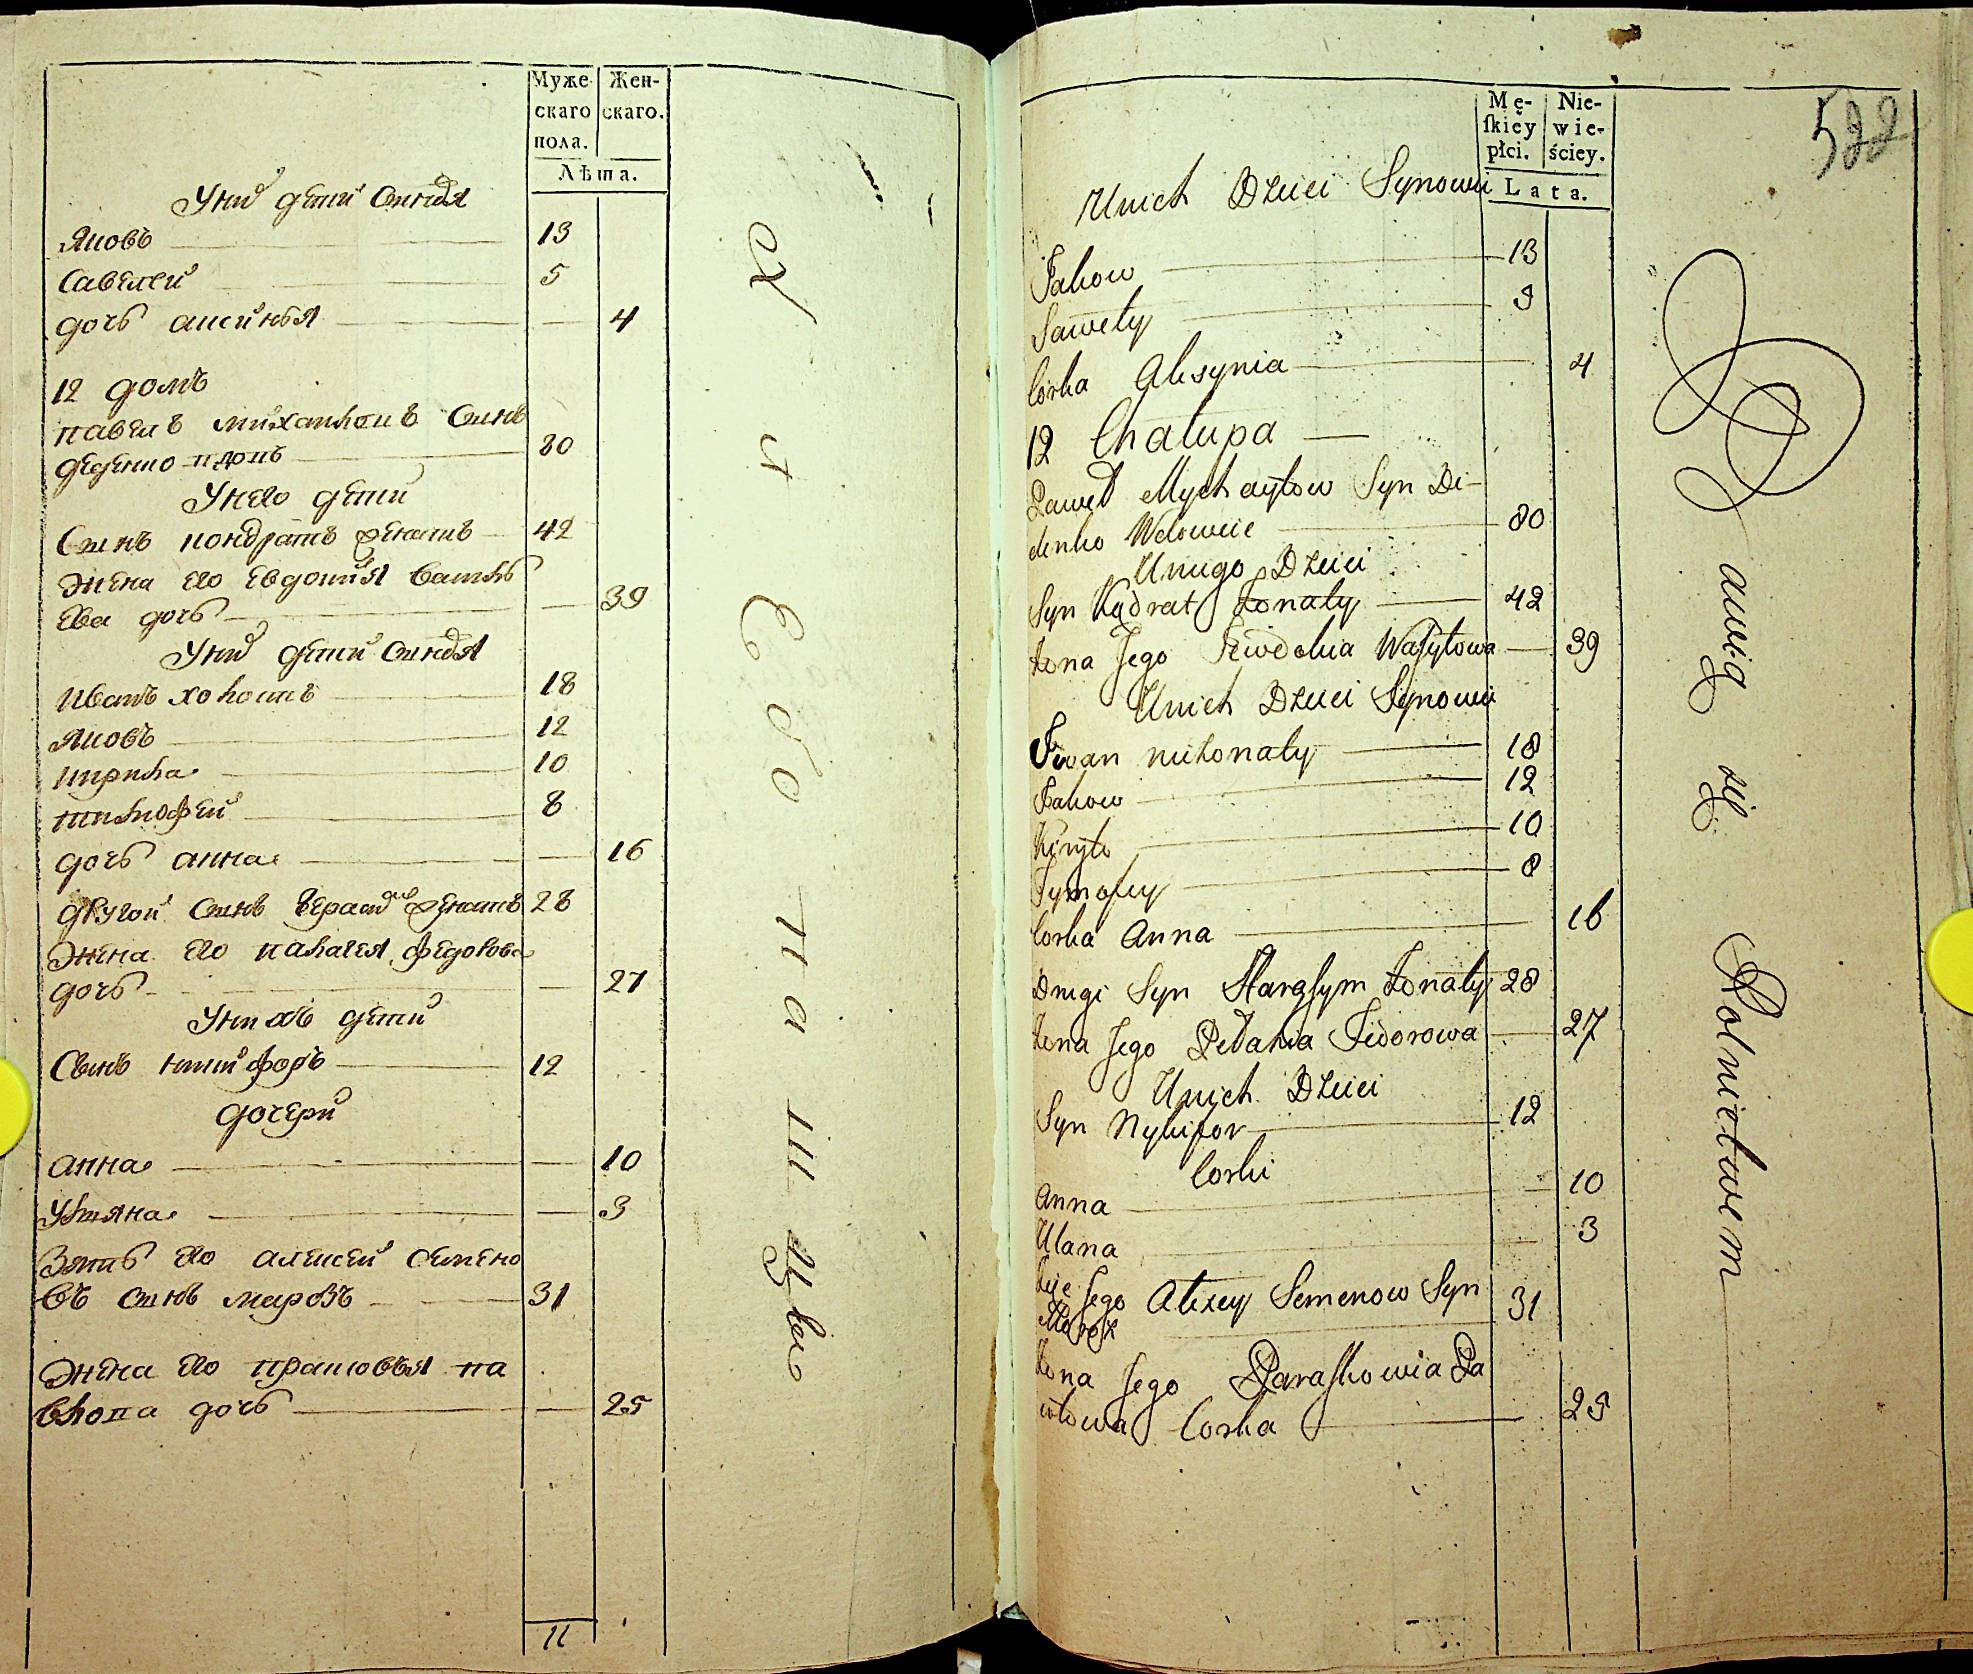 Муже-
скаго
пола.
Жен-
скаго.
Лѣта.
Унй дети Синовя
Яковъ 13
Савелей 5
дочь аксинья 4
12 домъ
павелъ михаиловъ Синъ
деденко 80
Унего дети
Синъ кондратъ женатъ 42
Жена его Евдокия василь
Ева дочь 39
Унй дети Синовя
Иванъ холостъ 18
Яковъ 12
кирила 10
тимофей 8
дочь анна 16
другой Синъ женатъ 28
Жена его палагея федорова
дочь 27
Унихъ дети
Синъ никифоръ 12
дочери
анна 10
Уляна 3
Зять его алексей семено
въ Синъ марозъ 31
Жена его прасковья па
влова дочь 25
11
Хлебопашцы
522
Mę-
ſkiey
płci.
Nie-
wie-
ściey.
Lata.
Unich Dzieci Synowie
Jakow 13
Sawely 9
Corka Aksynia 4
12 Chałupa
Paweł Mychayłow Syn Di-
denko Wdowiec 80
Uniego Dzieci
Syn Kądrat Żonaty 42
Żona Jego Jewdokia Wasylowa 39
Unich Dzieci Synowie
Iwan nieżonaty 18
Jakow 12
Kiryło 10
Tymofiey 8
Corka Anna 16
Drugi Syn Harasym Żonaty 28
Żona Jego Pełahia Fedorowa 27
Unich Dzieci
Syn Nykifor 12
Corki
Anna 10
Ulana 3
Jego Alexey Semenow Syn
Moroz 31
Żona Jego Paraskowia Pa
włowa Corka 25
Bawią się Rolnictwem